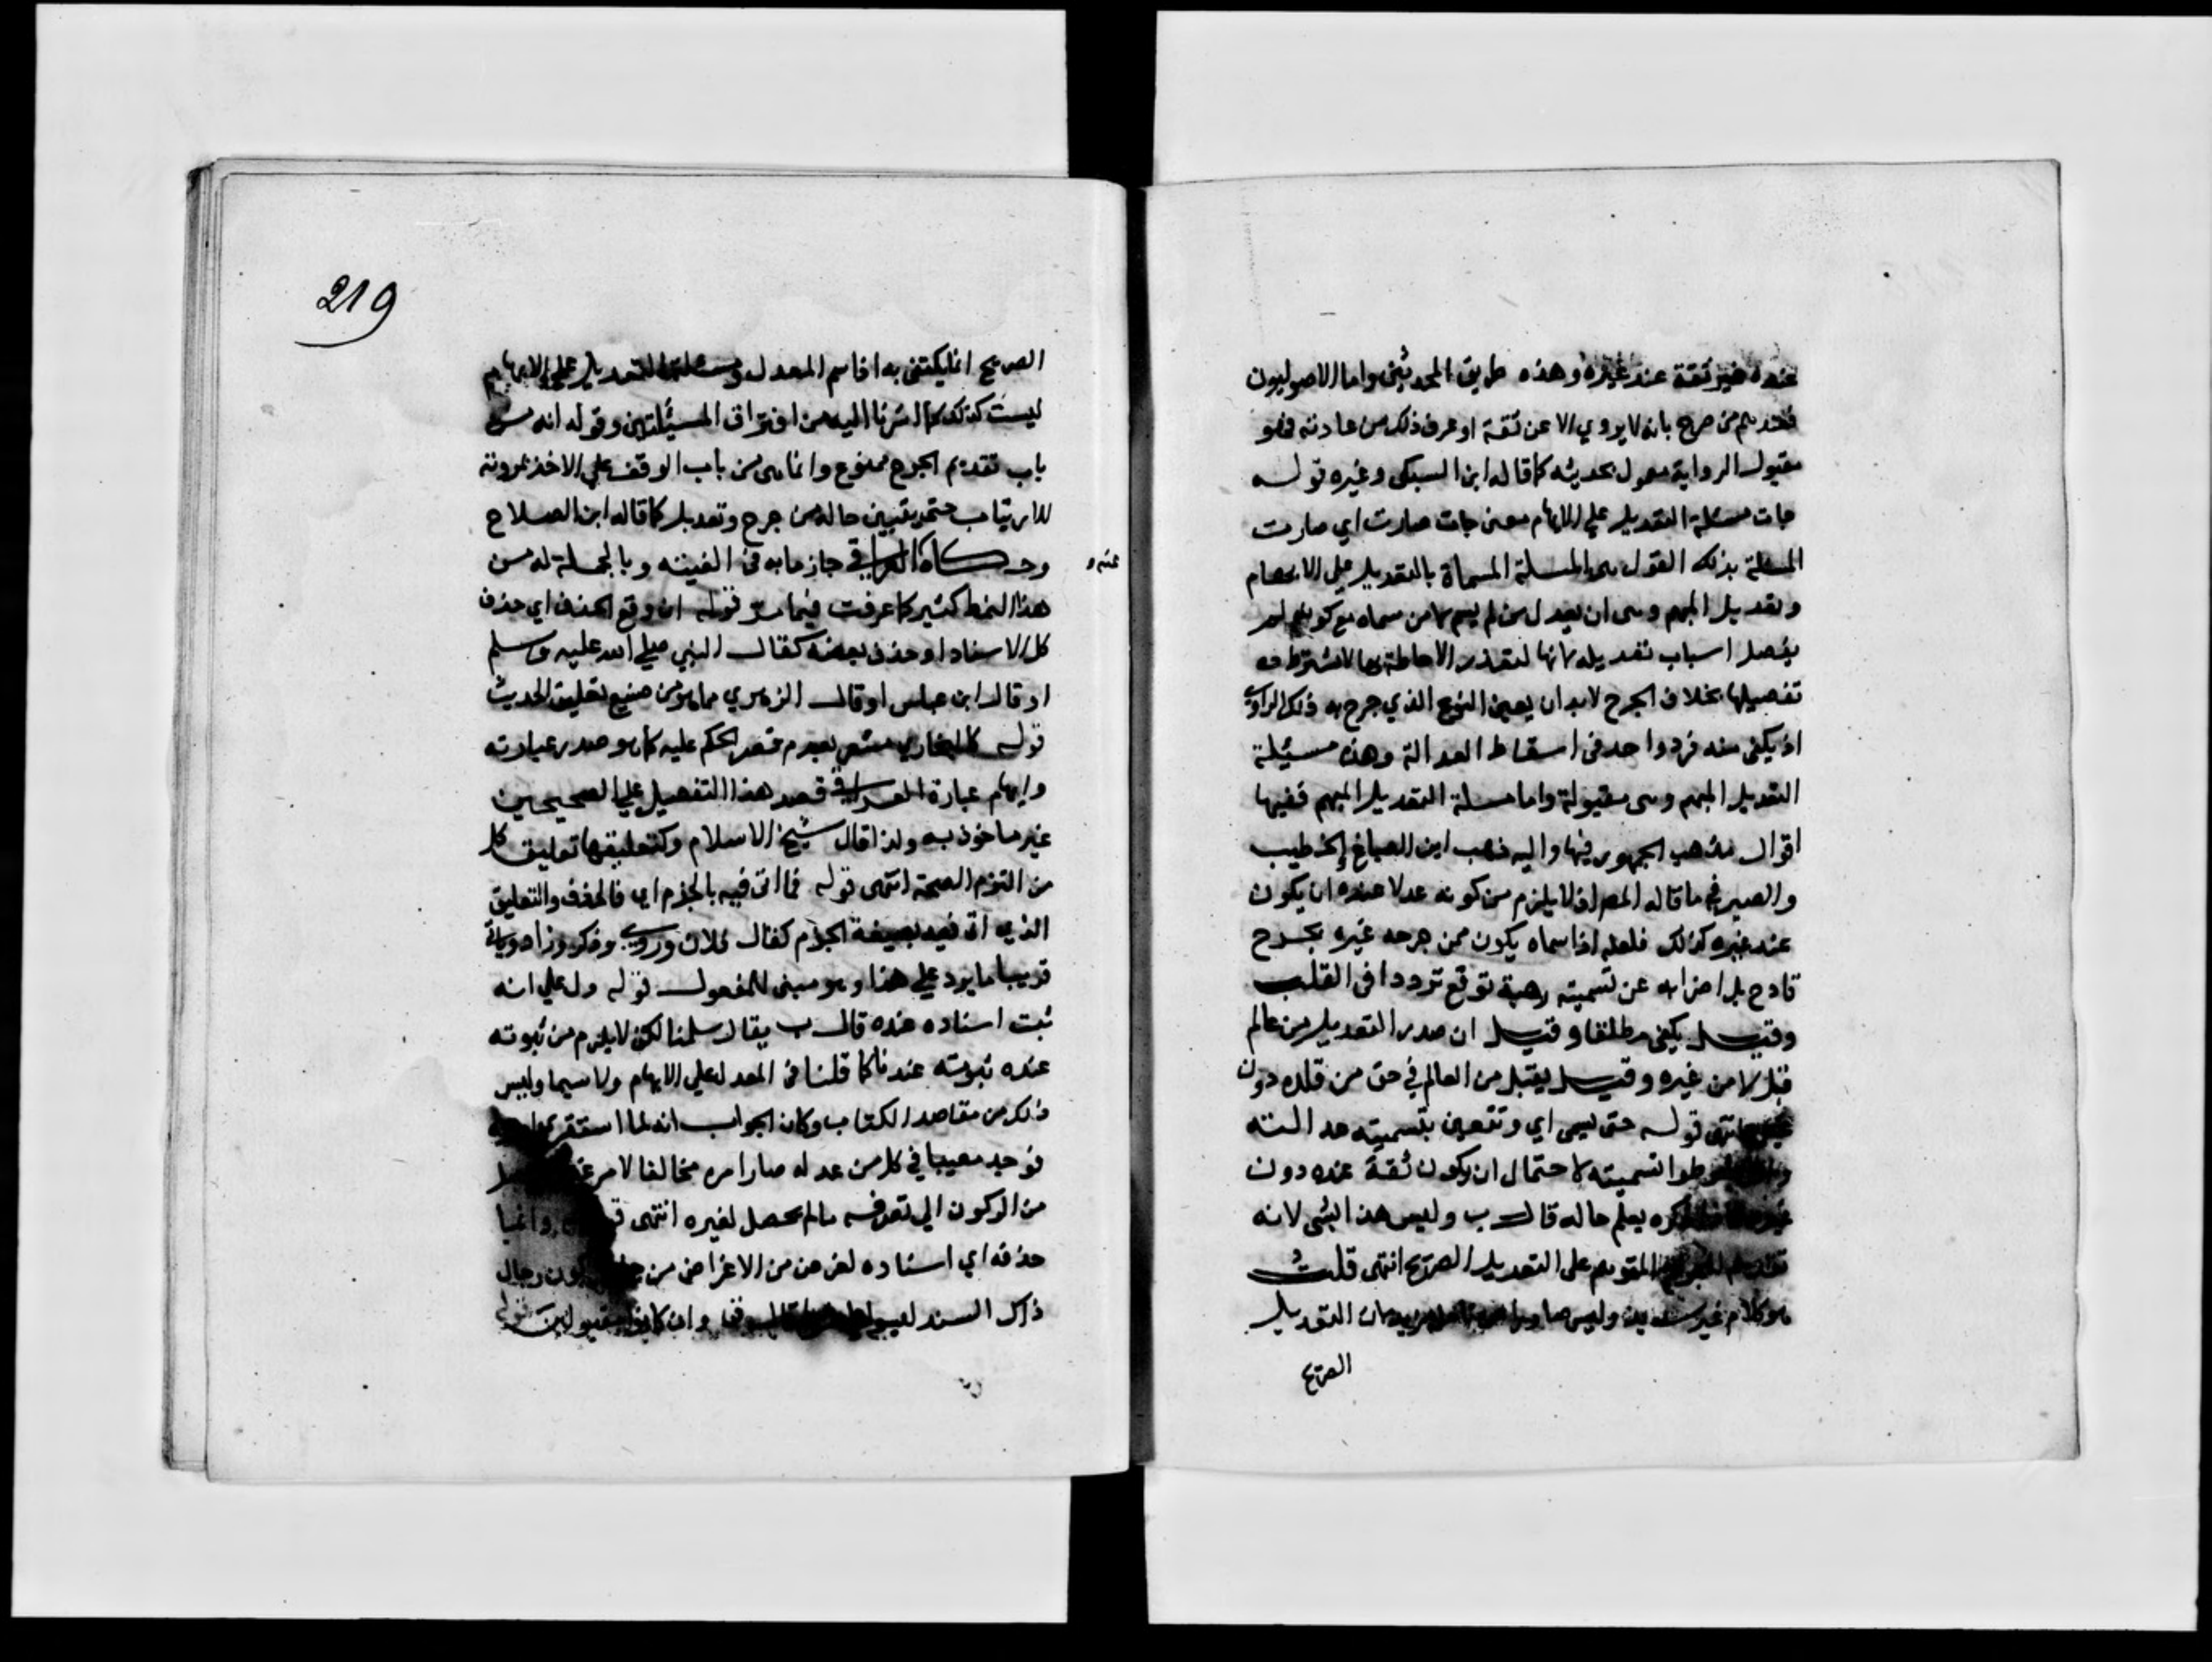 عنده غير ثقة عند غيره وهذه طريق المحدثين واما الاصوليون
فعندهم من صرح بانه لا يروي الا عن ثقة او عرف ذلك من عادته فهو
مقبول الرواية معمول بحديثه كما قاله ابن السبكي وغيره قوله
جات مسئلة التعديل علي الابهام معنى جات صارت اي صارت
المسئلة بذلك القول هي المسئلة المسماة بالتعديل علي الابهام
وتعديل المبهم وهي ان يعدل من لم يسم من سماه مع كونه لم
يفصل اسباب تعديله لانها لتعذر الاحاطة بها لا يشترط
تفصيلها بخلاف الجرح لابد ان يعين النوع الذي جرح به ذلك الراوي
اذ يكفي منه فرد واحد في اسقاط العدالة وهذه مسئلة
التعديل المبهم وهي مقبولة واما مسئلة التعديل المبهم ففيها
اقوال مذهب الجمهور فيها واليه ذهب ابن الصباغ والخطيب
والصيرفي ما قاله المص اذ لا يلزم من كونه عدلا عنده ان يكون
عند غيره كذلك فلعله اذا سماه يكون ممن جرحه غيره بجرح
قادح بل اضرابه عن تسميته ريبة توقع ترددا في القلب
وقيل يكفي مطلقا وقيل ان صدر التعديل من عالم
قبل لا من غيره وقيل يقبل من العالم في حق من قلده دون
غيره انتهى قوله حتى يسمى اي وتتعين بتسميته عدالته
تسميته لاحتمال ان يكون ثقة عنده دون
يعلم حاله قال ب وليس هذا بشي لانه
المتوهم على التعديل الصريح انتهى قلت
هو كلام غير سديد وليس التعديل
الصريح
219
الصريح انما يكتفى به اذا سم المعدل ومسئلة التعديل علي الابهام
ليست كذلك كما اشرنا اليه من افتراق المسئلتين وقوله انه من
باب تقديم الجرح ممنوع وانما هي من باب الوقف علي الاخذ بمرويه
للارتياب حتى يتبين حاله من جرح وتعديل كما قاله ابن الصلاح
وحكاه العراقي جازما به في الفيته وبالجملة له من
عنه و
هذا النمط كثير كما عرفت فيما مر قوله ان وقع الحذف اي حذف
كل الاسناد او حذف بعضه كقال النبي صلي الله عليه وسلم
او قال ابن عباس او قال الزهري مما هو من صنيع تعليق الحديث
قوله كالبخاري مشعر بعدم قصر الحكم عليه كما هو صدر عبارته
وايهام عبارة العراقي قصد هذا التفصيل علي الصحيحين
غير ماخوذ به ولذا قال شيخ الاسلام وكتعليقهما تعليق كل
من التزم الصحة انتهى قوله فما اتى فيه بالجزم اي فالحذف والتعليق
الذي اتى فيه بصيغة الجزم كقال فلان وروى وذكر وزاد وياتي
قريبا ما يرد علي هذا وهو مبني للمفعول قوله دل علي انه
ثبت اسناده عنده قال ب يقال سلمنا لكن لا يلزم من ثبوته
عنده ثبوته عندنا كما قلنا في المعدل علي الابهام ولا سيما وليس
ذلك من مقاصد الكتاب وكان الجواب انه لما استقرئ
فوجد مصيبا في كل من عدله صار امره مخالفا لامر
من الركون الي تعرفه مالم يحصل لغيره انتهى وانما
حذفه اي اسناده لغرض من الاغراض من رجال
ذلك السند وان كانوا مقبولين قوله